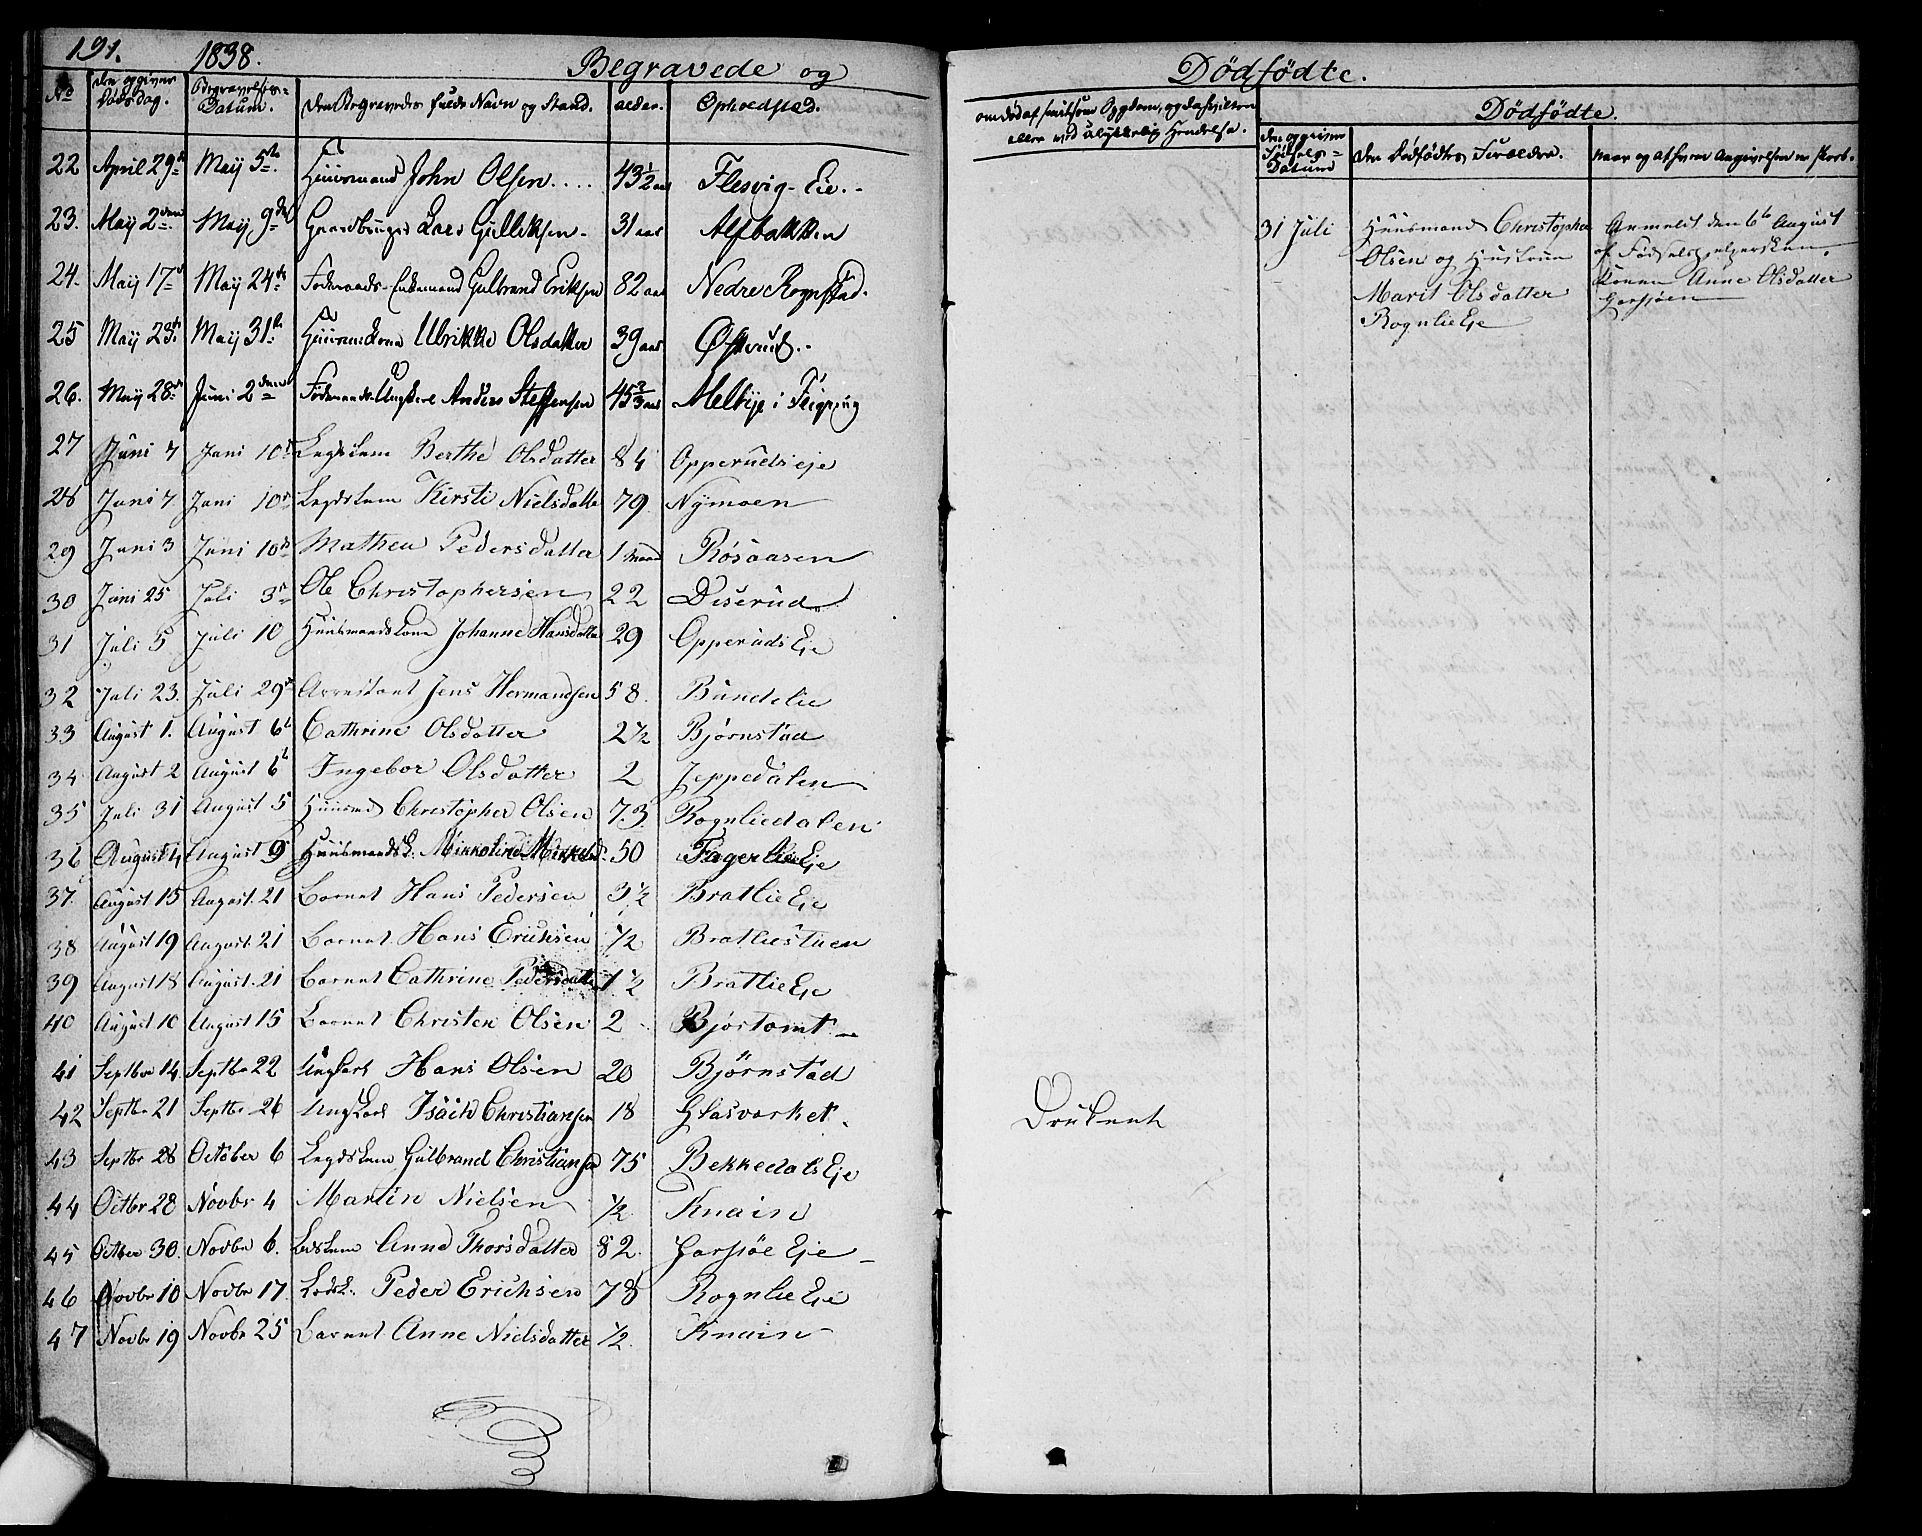 191. 1838. Begravede og
No den opgivne Dødsdag. Begravelses-Datum. den Begravedes fulde Navn og Stand. alder. Opholdsted.
22 April 29de May 5te Huusmand John Olsen.... 43½ aar Flesvig-Eie.-
23. May 2den May 9de Gaardbruger Lars Gulliksen- 31 aar Alfbakken
24. May 17de May 24de Føderaads-Enkemand Gulbrand Eriksen 82 aar Nedre Rognstad.
25 May 23de May 31te Huusmandskone Ulrikke Olsdatter 39 aar Østerud.-
26. May 28de Juni 2den Føderaads Ungkarl Anders Steffensen 45⅔ aar Melbye i Feigring
27 Juni 7 Juni 10de Legdslem Berthe Olsdatter 84 Opperuds eje
28 Juni 7. Juni 10de Legdslem Kirsti Nielsdatte 79 Nÿmoen
29 Juni 3 Juni 10de Mathea Pedersdatter 1 Maaned Røsaasen
30 Juni 25 Juli 3de Ole Christophersen 22 Diserud
31 Juli 5 Juli 10 Huusmandskone Johanne Hansdatte 29 Opperuds Eje
32 Juli 23. Juli 29de Arrestant Jens Hermandsen 58. Bundelie
33 August 1. August 6te Cathrine Olsdatter 2½ Bjørnstad
34. August 2 August 6te Ingebor Olsdatter 2 Jeppedalen
35 Juli 31 August 5 Huusmd Christopher Olsen 73 Rognliedalen
36 August 4 August 9 Huusmandsk. Mikkoline Mikkelsd. 50 Fagerlie Eje
37. August 15 August. 21 Barnet Hans Pedersen 3½ Bratlie Eje
38 August 19 August. 21 Barnet Hans Erichsen ½ Bratliestuen
39 August 18 August. 21 Barnet Cathrine Pedersdatte 1½ Bratlie Eje
40 August 10 August 15 Barnet Christen Olsen 2 Bjørtomt
41 Septbr 14. Septbr 22 Ungkarl Hans Olsen 20 Bjørnstad
42 Septbr 21 Septbr 26 Ungkarl Isach Christiansen 18 Glasværket.
43 Septbr 28 October 6 Legdslem Gulbrand Christiansen 75 Bekkedals Eje
44 Octbr 28 Novbr 4 Martin Nielsen ½ Knain
45 October 30. Novbr 6. Ledslem Anne Thorsdatter 82. Garsjøe Eje
46 Novbr 10 Novbr 17. Ledsl. Peder Erichsen 78 Rognlie Eje
47 Novbr 19 Novbr 25 Barnet Anne Nielsdatter ½. Knain
Dødfødte.
om død af smitsom Sygdom, og da hvilken
eller ved ulykkelig Hendelse.
Dødfødte.
den opgivne Fødsels-Datum den Dødfødtes Forældre. naar og af hvem Angivelsen er skeet.
31 Juli Huusmand Christopher
Olsen og Hustrue
Marit Olsdatter
Rognlie Eje
Anmeldt den 6te August
af Fødselshjelpersken
Konen Anne Olsdatter
Garsjøen
Druknet